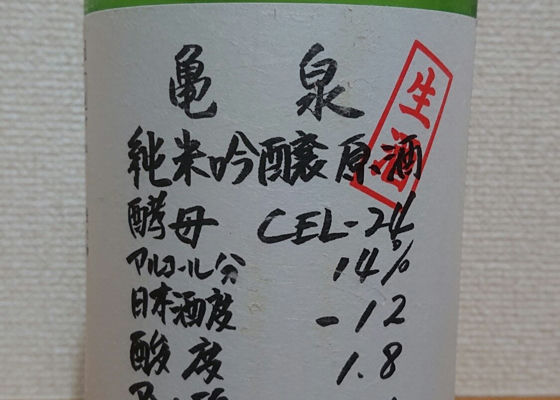 亀泉
生酒
純米吟醸原酒
酵母 CEL-24
アルコール分 14%
日本酒度 -12
酸度 1.8